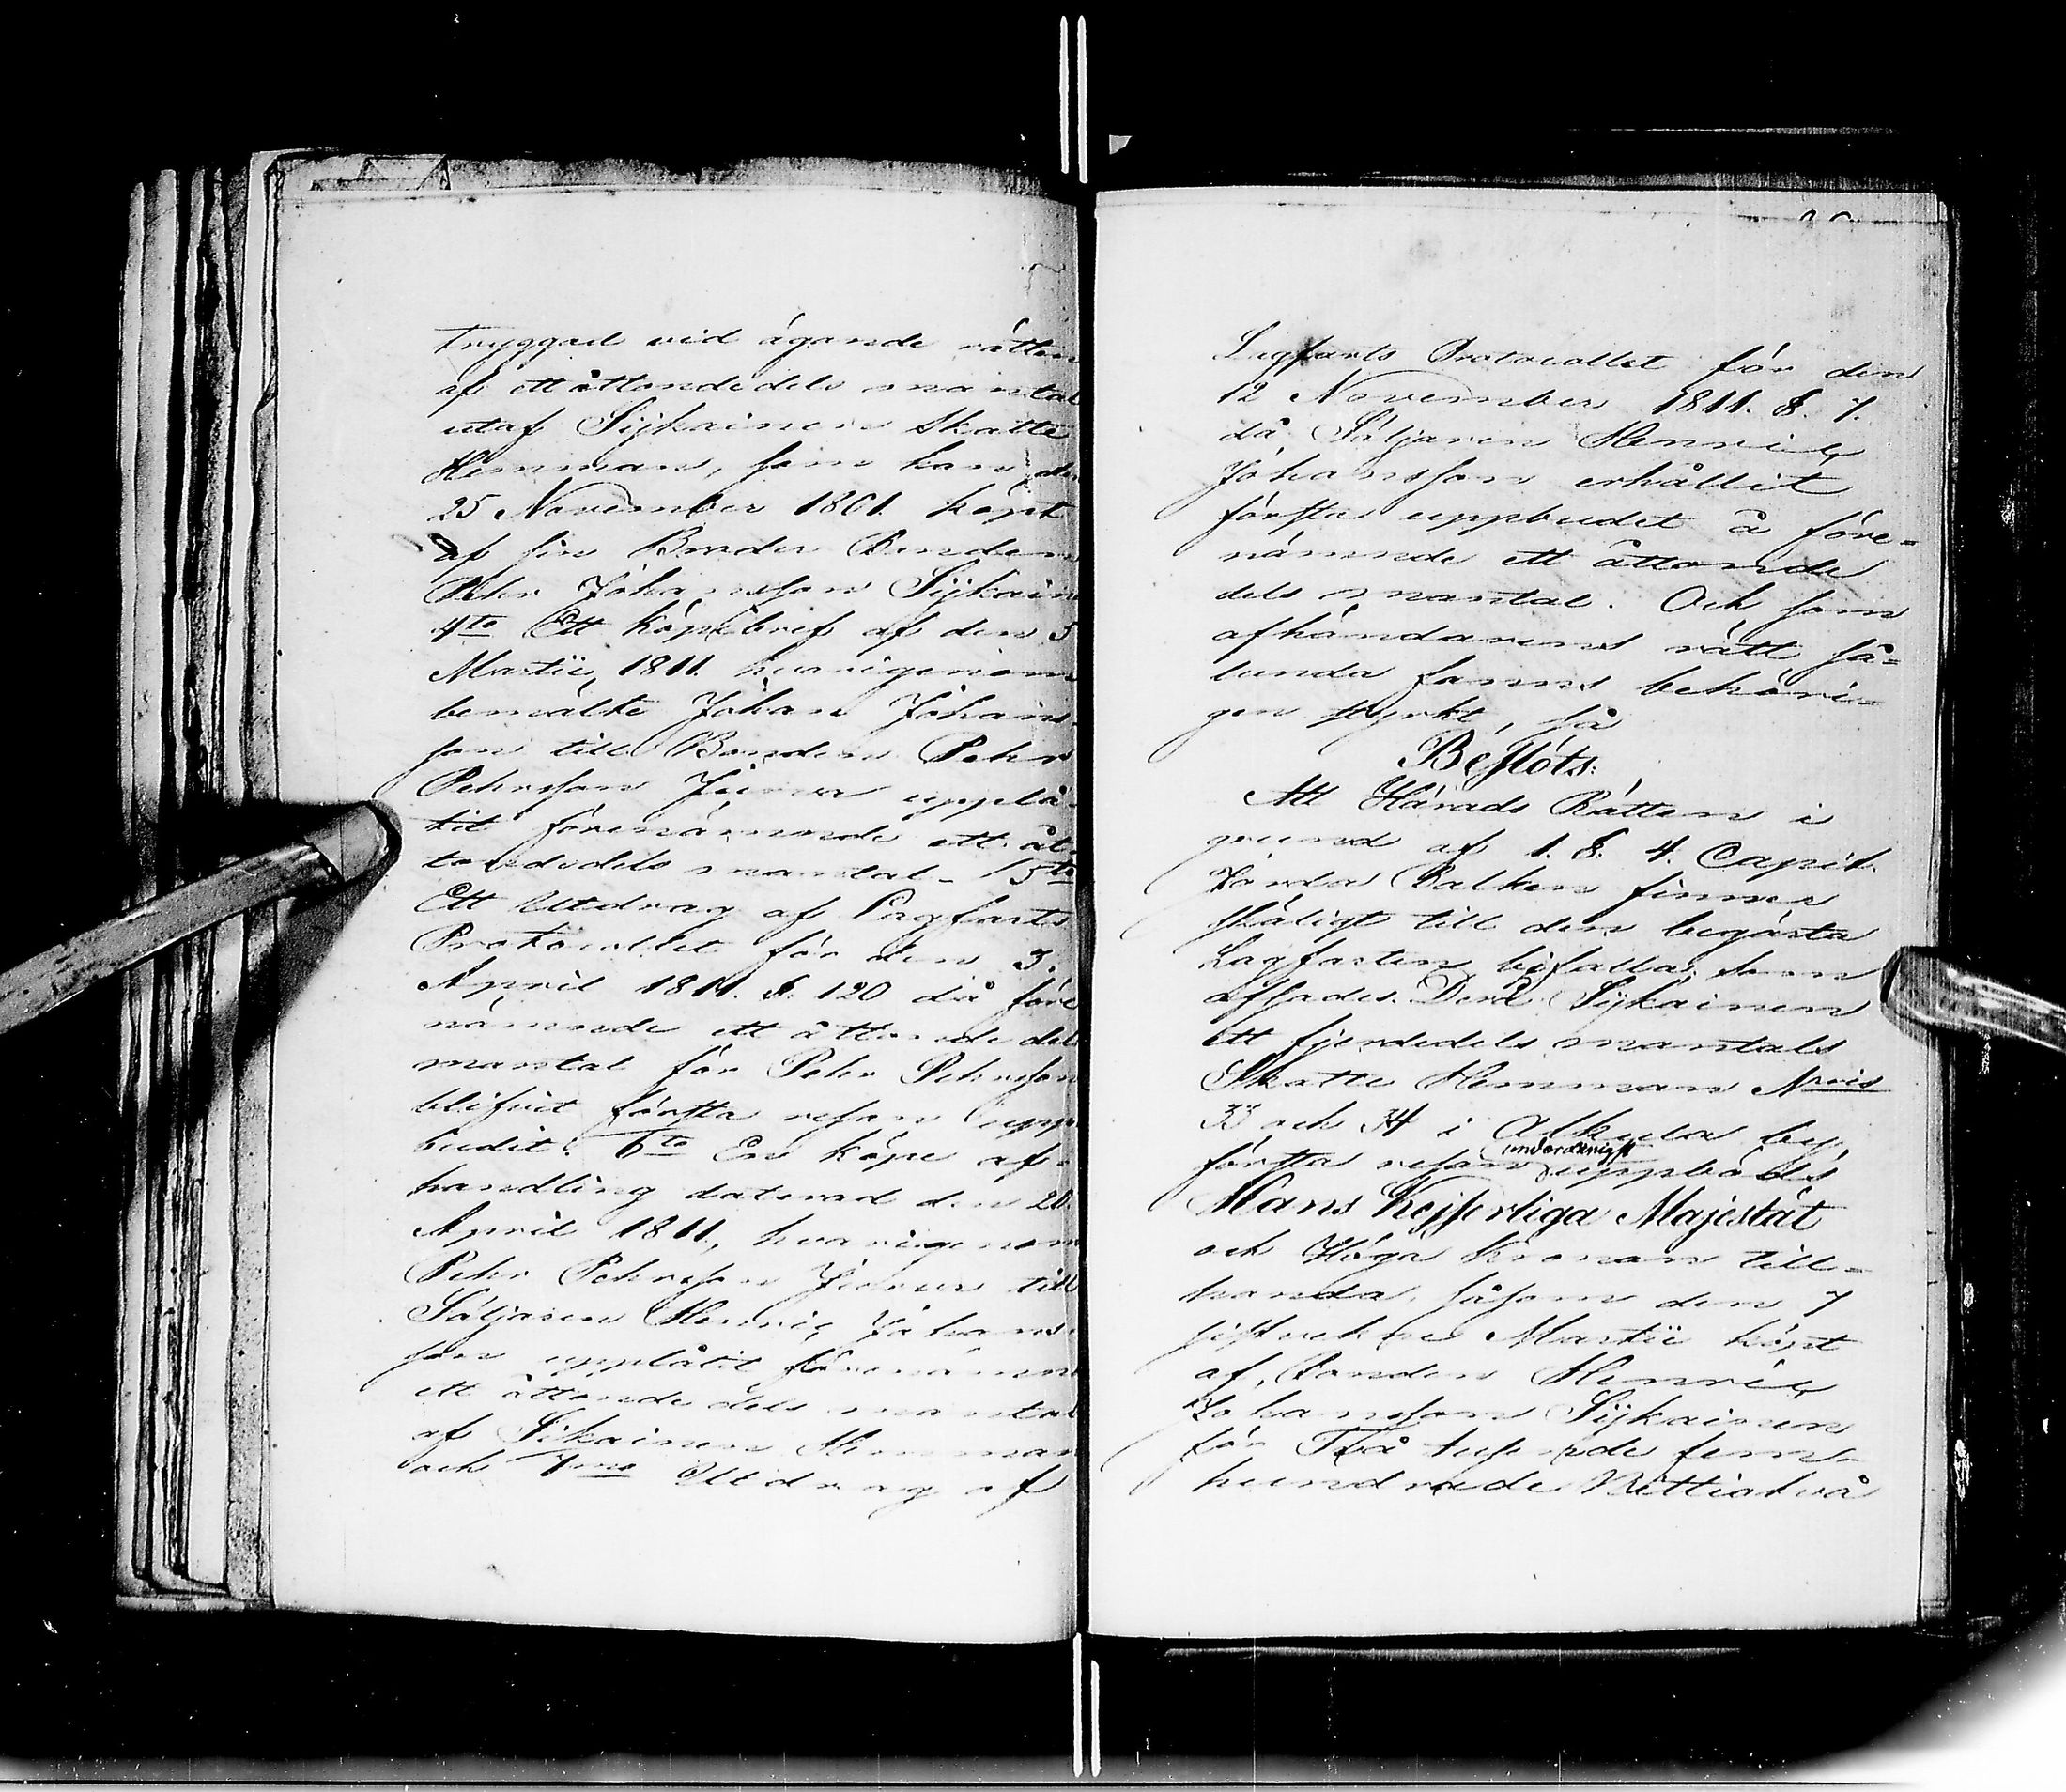 tryggad vid ägande rätten
af ett åttondedels mantal
utaf Sijkainen Skatte
Hemman, som han den
25 November 1801. köpt
af sin Broder Bonden
Pehr Johansson Sijkain
4to Ett köpebref af den 5
Martii 1811. hvarigenom
bemälte Johan Johans-
son till Bonden Pehr
Pehrsson Juvva upplå-
tit förenämnde ett åt-
tondedels mantal. 5to
Ett Utdrag af Lagfarts
Protocollet för den 3.
April 1811. §. 120 då före
nämnde ett åttonde dels
mantal för Pehr Pehrsson
blifvit första resan upp
budit. 6to En köpe af-
handling daterad den 20
April 1811, hvarigenom
Pehr Pehrsson till
Säljaren Henric Johans-
son upplåtit förenämn
ett åttonde dels mantal
af Sikainen Hemman
och 7mo Utdrag af
Lagfarts Protocollet för den
12 November 1811. §. 7.
då Säljaren Henric
Johansson erhållit
första uppbudet å före-
nämnde ett åttonde
dels mantal. Och som
afhändarens rätt så-
lunda fanns behöri-
gen styrkt, så
Beslöts:
Att Härads Rätten i
grund af 1. §. 4. Capit.
Jorda Balken finner
skäligt till den begärta
Lagfarten bifalla; som
aflades. Derå Sijkainen
ett fjerdedels mantals
Skatte Hemman Nris
33 och 34 i Alkula by
första resan underdånigst uppböds
Hans Kejserliga Majestät
och Höga Kronan till-
handa, såsom den 7
sistvekne Martii köpt
af Bonden Henric
Johansson Sijkainen
för Två tusende fem-
hundrade Nittiotvå